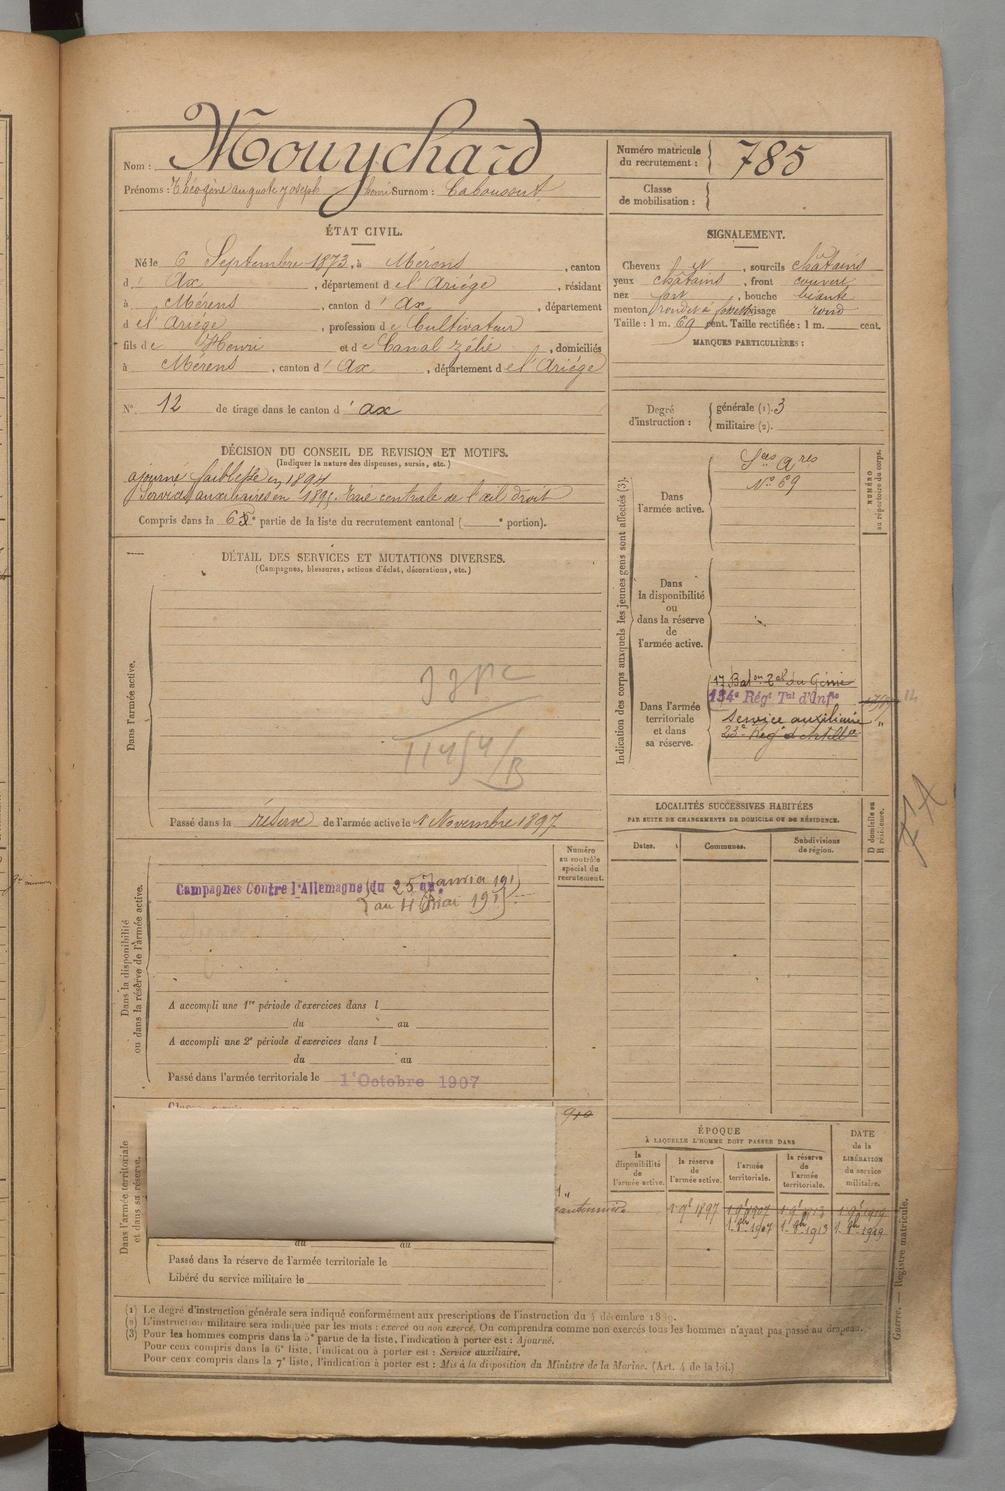 Nom : Mouychard
Prénoms : Théogène auguste joseph henri Surnom : Caboussout
Numéro matricule du recrutement : 785
Classe de mobilisation :
ÉTAT CIVIL.
Né le 6 Septembre 1873, à Mérens, canton
d' Ax, département de l'Ariége, résidant
à Mérens, canton d' Ax, département
de l'Ariége, profession de Cultivateur
fils de Henri et de Canal Zélie, domiciliés
à Mérens, canton d' Ax, département de l'Ariége
N° 12 de tirage dans le canton d' ax
SIGNALEMENT.
Cheveux et, sourcils châtains
yeux châtains, front couvert
nez fort, bouche béante
menton rond et à fossette visage rond
Taille : 1 m. 69 cent. Taille rectifiée : 1 m. cent.
MARQUES PARTICULIÈRES :
Degré d'instruction : générale (1). 3
militaire (2).
DÉCISION DU CONSEIL DE REVISION ET MOTIFS.
(Indiquer la nature des dispenses, sursis, etc.)
ajourné faiblesse en 1894
Services auxiliaires en 1895. Taie centrale de l'œil droit
Compris dans la 6e partie de la liste du recrutement cantonal ( e portion).
DÉTAIL DES SERVICES ET MUTATIONS DIVERSES.
(Campagnes, blessures, actions d'éclat, décorations, etc.)
Dans l'armée active.
Passé dans la réserve de l'armée active le 1 Novembre 1897
Indication des corps auxquels les jeunes gens sont affectés (3).
NUMÉRO au répertoire du corps.
Dans l'armée active.
Sces Ares
N° 69
Dans la disponibilité ou dans la réserve de l'armée active.
Dans l'armée territoriale et dans sa réserve.
17 Baton Zal du Génie
134e Régt Tal d'Infie
Service auxiliaire "
23e Reg d'Artillie
LOCALITÉS SUCCESSIVES HABITÉES
PAR SUITE DE CHANGEMENTS DE DOMICILE OU DE RÉSIDENCE.
Dates.
Communes.
Subdivisions de région.
D domicile ou R résidence.
Dans la disponibilité ou dans la réserve de l'armée active.
Numéro au contrôle spécial du recrutement.
Campagnes Contre l'Allemagne du 25 Janvier 191
au Mai 191
A accompli une 1re période d'exercices dans l
du au
A accompli une 2e période d'exercices dans l
du au
Passé dans l'armée territoriale le 1er Octobre 1907
Dans l'armée territoriale et dans sa réserve.
du au
Passé dans la réserve de l'armée territoriale le
Libéré du service militaire le
ÉPOQUE
À LAQUELLE L'HOMME DOIT PASSER DANS
la disponibilité de l'armée active.
la réserve de l'armée active.
l'armée territoriale.
la réserve de l'armée territoriale.
DATE de la LIBÉRATION du service militaire.
1 9bre 1897
1 9bre 1907
1 9bre 1913
1 9bre 1919
1. 8bre 1907
1. 8bre 1913
1. 8bre 1919
(1) Le degré d'instruction générale sera indiqué conformément aux prescriptions de l'instruction du 4 décembre 1889.
(2) L'instruction militaire sera indiquée par les mots : exercé ou non exercé. On comprendra comme non exercés tous les hommes n'ayant pas passé au drapeau.
(3) Pour les hommes compris dans la 5e partie de la liste, l'indication à porter est : Ajourné.
Pour ceux compris dans la 6e liste, l'indication à porter est : Service auxiliaire.
Pour ceux compris dans la 7e liste, l'indication à porter est : Mis à la disposition du Ministre de la Marine. (Art. 4 de la loi.)
Guerre. — Registre matricule.